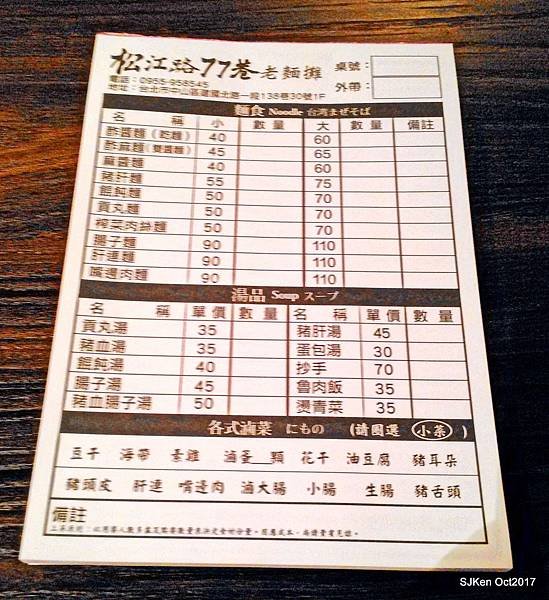 松江路77巷老麵攤 桌號：
電話：0955-958545 外帶：
地址：台北市中山區建國北路一段138巷30號1F
麵食 Noodle 台湾まぜそば
名 稱 小 數量 大 數量 備註
酢醬麵(乾麵) 40 60
酢麻麵(雙醬麵) 45 65
麻醬麵 40 60
豬肝麵 55 75
餛飩麵 50 70
貢丸麵 50 70
榨菜肉絲麵 50 70
腸子麵 90 110
肝連麵 90 110
嘴邊肉麵 90 110
湯品 Soup スープ
名 稱 單價 數量 名 稱 單價 數量
貢丸湯 35 豬肝湯 45
豬血湯 35 蛋包湯 30
餛飩湯 40 抄手 70
腸子湯 45 魯肉飯 35
豬血腸子湯 50 燙青菜 35
各式滷菜 にもの (請圈選 小菜)
豆干 海帶 素雞 滷蛋__顆 花干 油豆腐 豬耳朵
豬頭皮 肝連 嘴邊肉 滷大腸 小腸 生腸 豬舌頭
備註
SJKen Oct2017